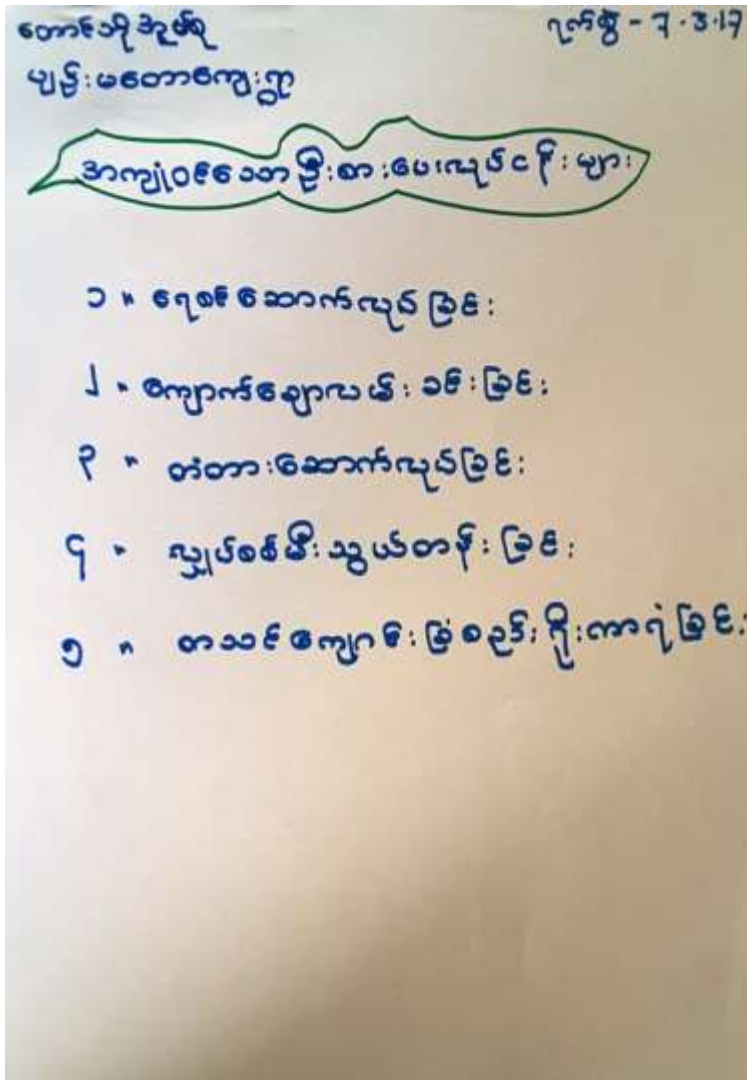 တောင်သို့အုပ်စု
ရက်စွဲ - 7.3.17
မျဉ်းမတောကျေးရွာ
အကျုံဝင်သောဦးစားပေးလုပ်ငန်းများ
၁။ ရေစင်ဆောက်လုပ်ခြင်း
၂။ ကျောက်ချောလမ်းခင်းခြင်း
၃။ တံတားဆောက်လုပ်ခြင်း
၄။ လျှပ်စစ်မီးသွယ်တန်းခြင်း
၅။ စာသင်ကျောင်းခြံစည်းရိုးကာရံခြင်း